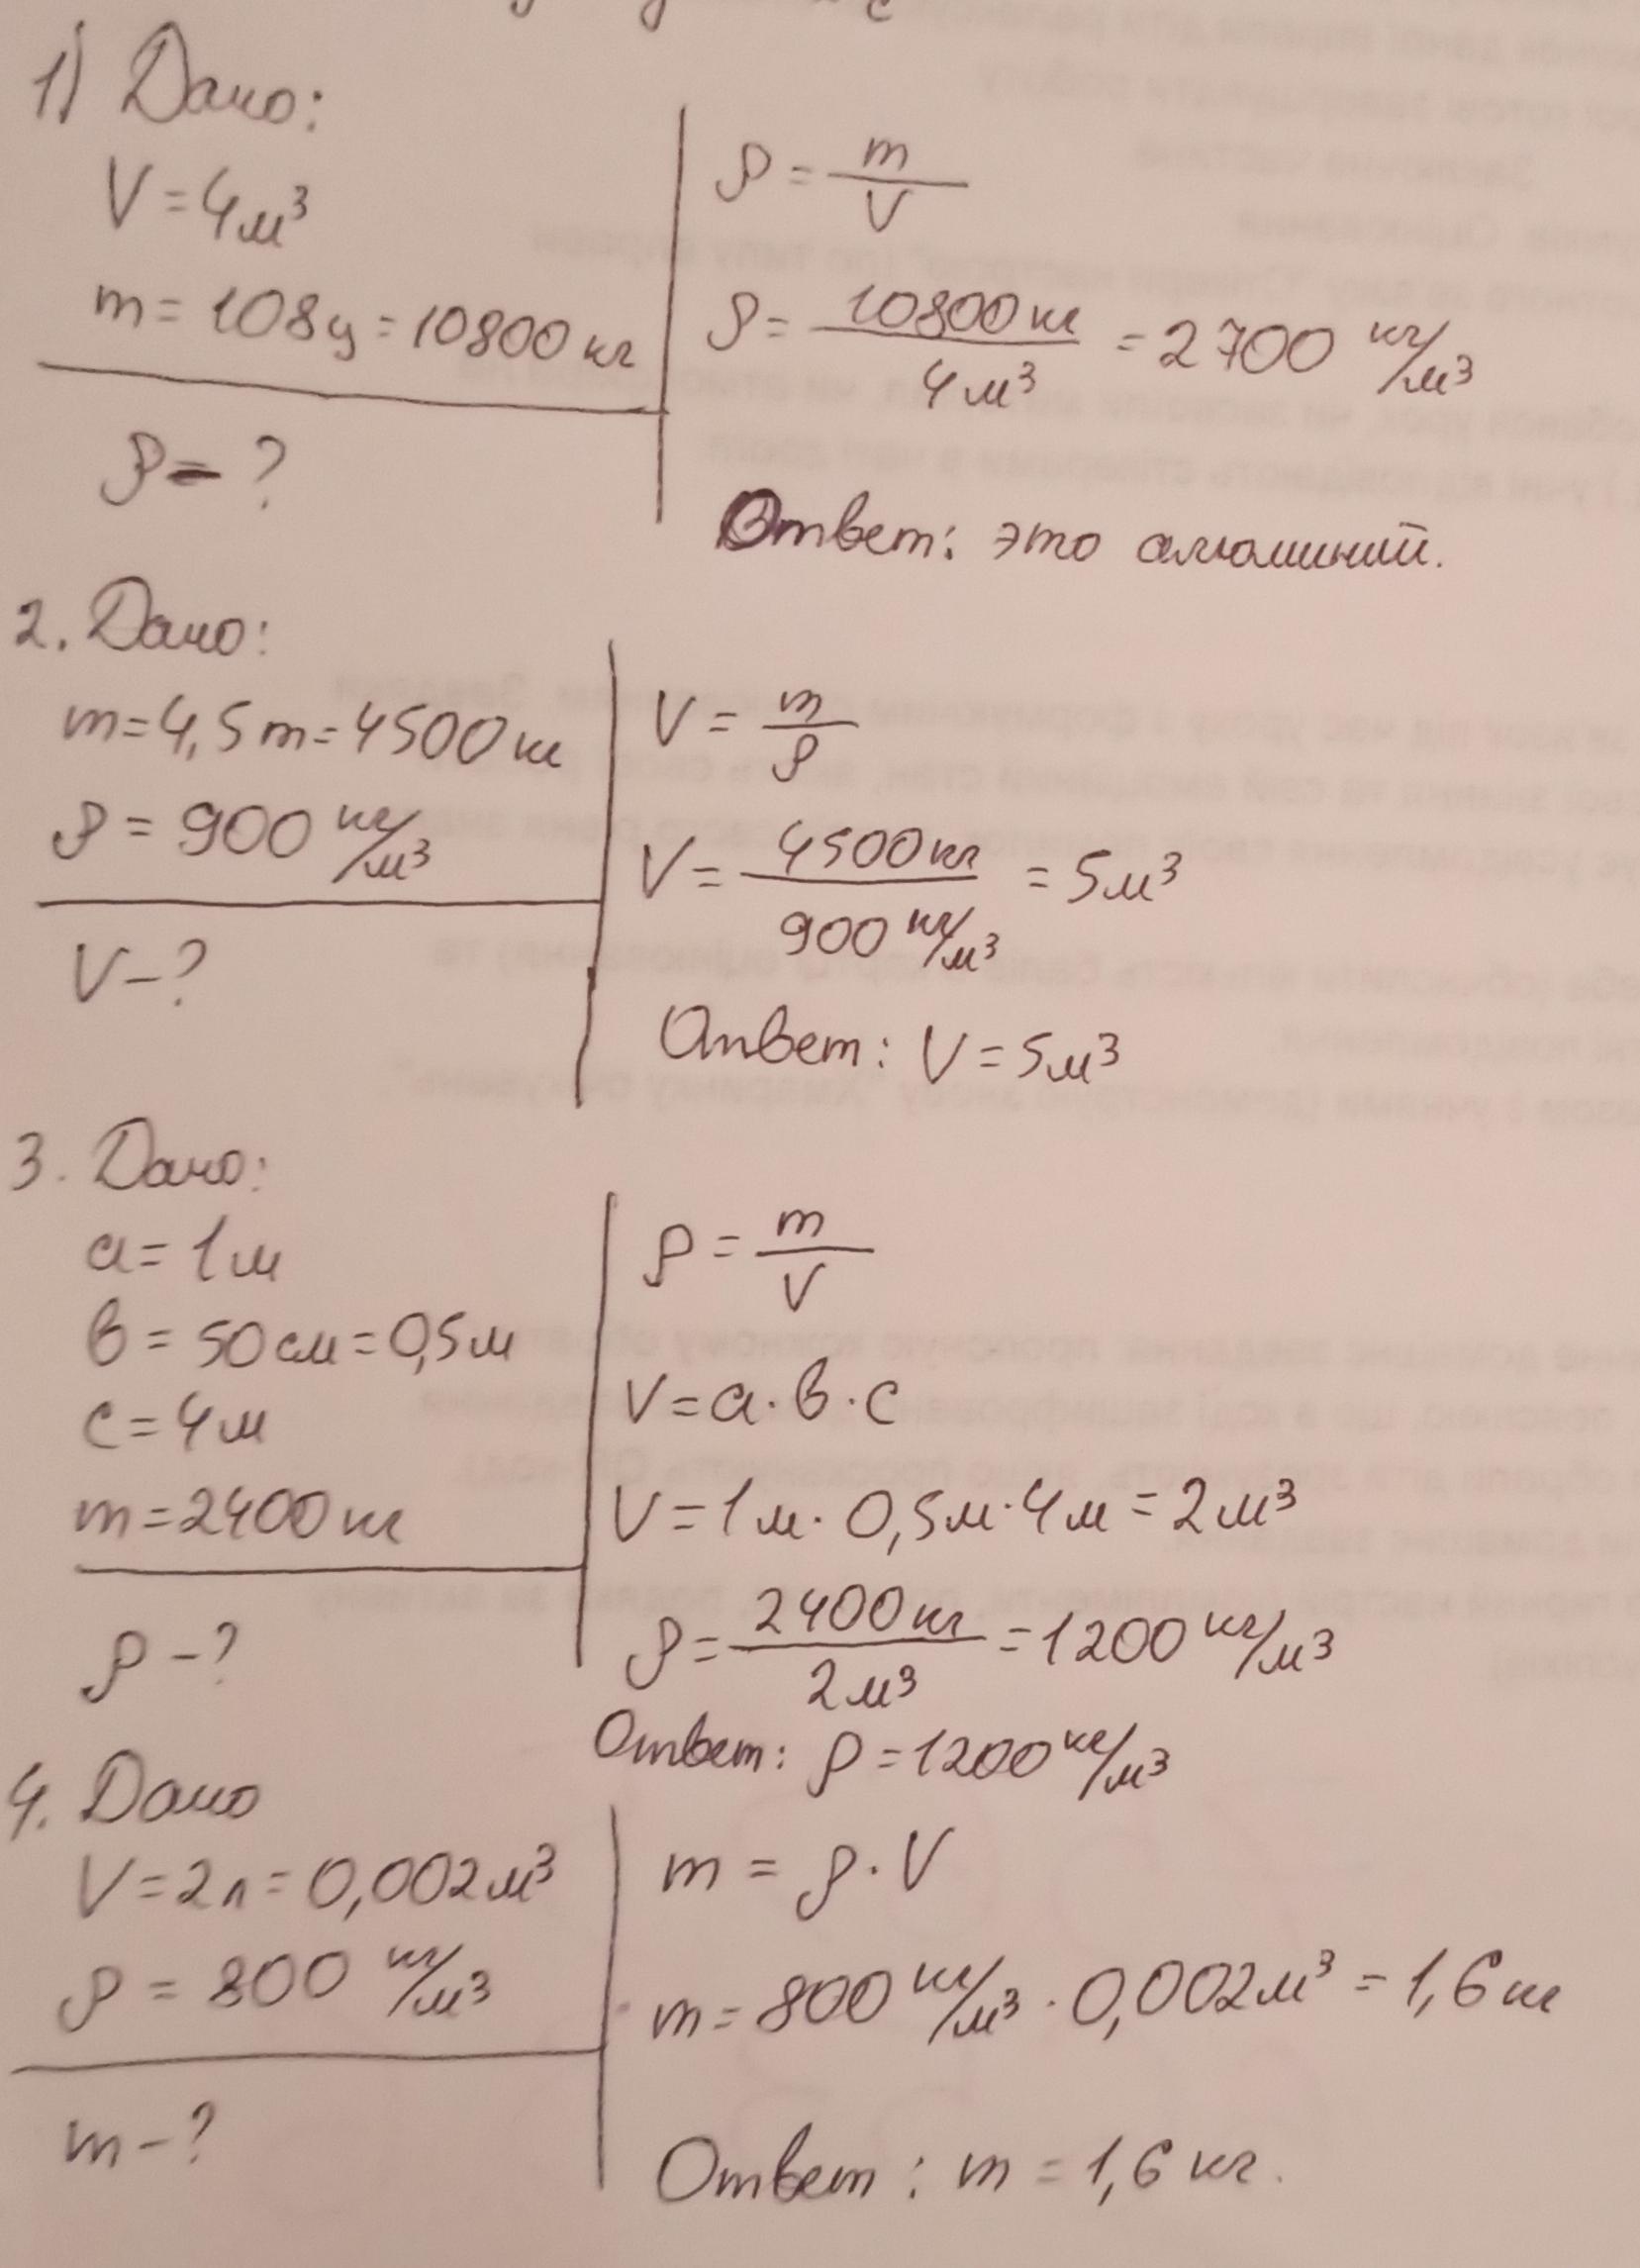 1) Дано:
V = 4м³
m = 108ц = 10800 кг
ρ - ?
ρ = m/V
ρ = 10800 кг / 4 м³ = 2700 кг/м³
Ответ: это алюминий.
2. Дано:
m = 4,5 т = 4500 кг
ρ = 900 кг/м³
V - ?
V = m/ρ
V = 4500 кг / 900 кг/м³ = 5м³
Ответ: V = 5м³
3. Дано:
a = 1м
в = 50 см = 0,5м
c = 4м
m = 2400 кг
ρ - ?
ρ = m/V
V = a · в · c
V = 1м · 0,5м · 4м = 2м³
ρ = 2400 кг / 2м³ = 1200 кг/м³
Ответ: ρ = 1200 кг/м³
4. Дано
V = 2л = 0,002м³
ρ = 800 кг/м³
m - ?
m = ρ · V
m = 800 кг/м³ · 0,002м³ = 1,6 кг
Ответ: m = 1,6 кг.